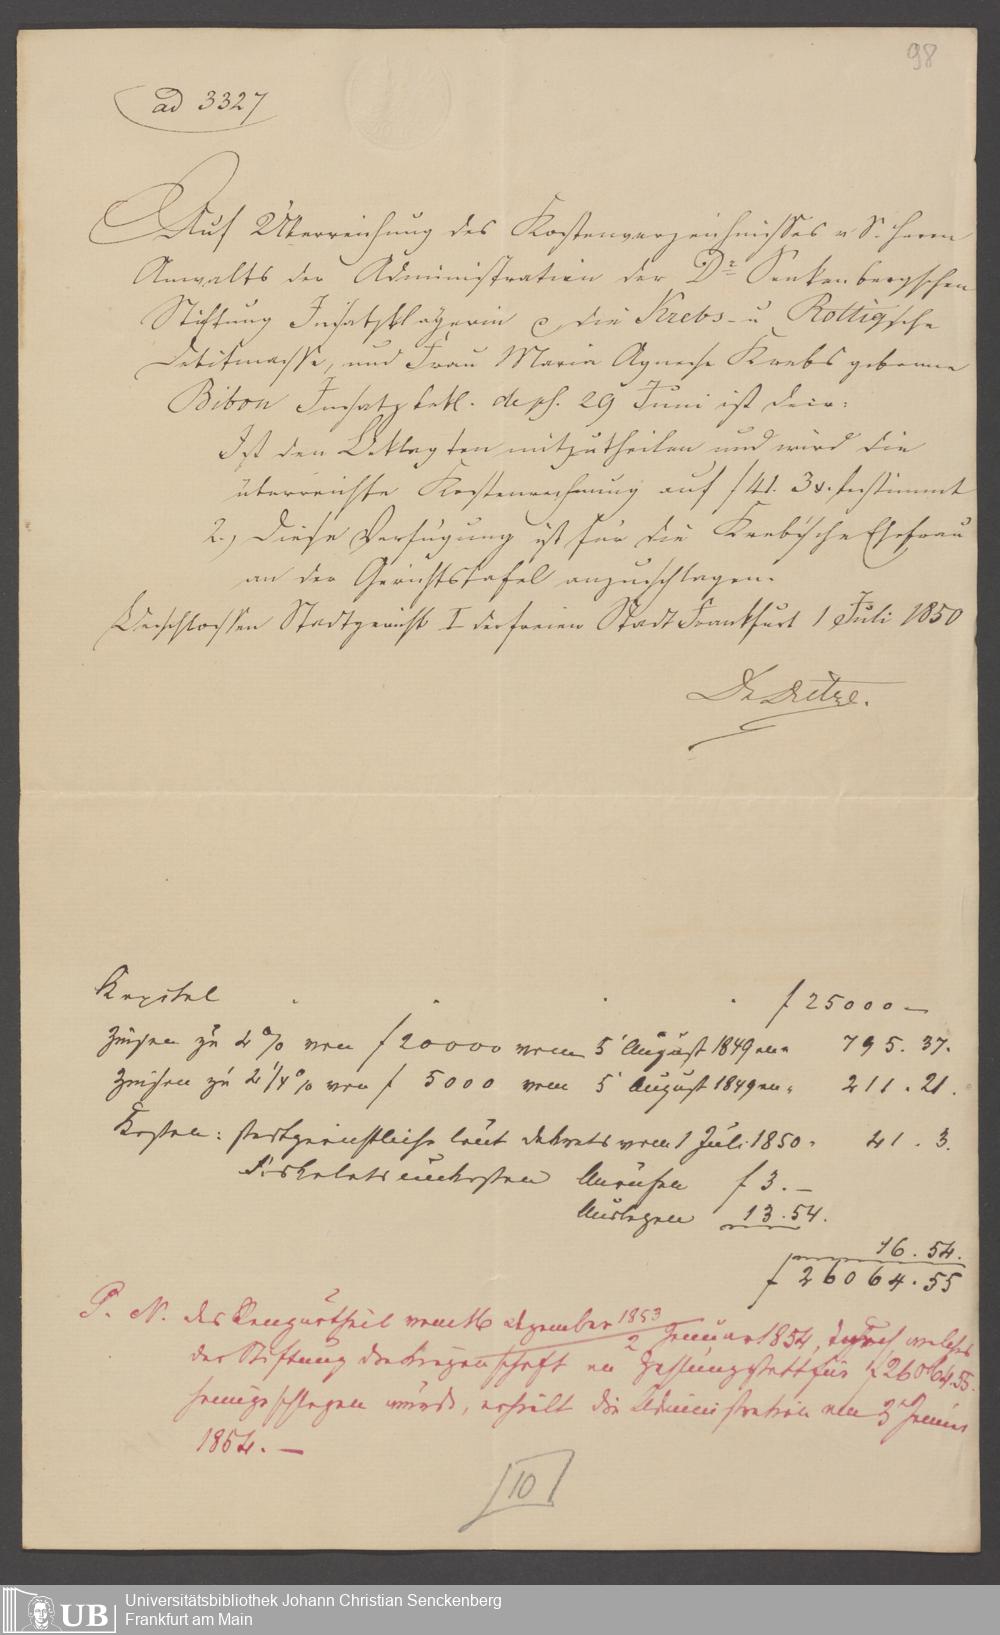 98
ad 3327
Auf Überreichung des Kostenverzeichnisses v. S. Herrn
Anwalts der Administration der Dr Senkenbergschen
Stiftung Insatzklägerin c die Krebs- u Rottigsche
Debitmasse, und Frau Maria Agnese Krebs geborene
Bibon Insatzbekl. de ps. 29 Juni ist decr:
Ist den Beklagten mitzutheilen und wird die
überreichte Kostenrechnung auf f 41. 3x. bestimmt
2., diese Verfügung ist für die Krebs'sche Ehefrau
an der Gerichtstafel anzuschlagen.
Beschlossen Stadtgericht I der freien Stadt Frankfurt 1 Juli 1850
Kapital f 25000 –
Zinsen zu 4 % von f 20000 vom 5 August 1849 an 795. 37.
Zinsen zu 4 1/4 % von f 5000 vom 5 August 1849 an 211. 21.
Kosten: stadtgerichtliche laut Dekrets vom 1 Juli 1850. 41. 3.
Fiskalatsunkosten Anrufen f 3. –
Auslagen 13. 54.
16. 54.
f 26064. 55
P. N. das vom 16 Dezember 1853
2 Januar 1854, durch welches
der Stiftung die Liegenschaft an Zahlungsstatt für f 26064.55.
heimgeschlagen wurde, erhielt die Administration am 3 Januar
1854. –
10
UB
Universitätsbibliothek Johann Christian Senckenberg
Frankfurt am Main